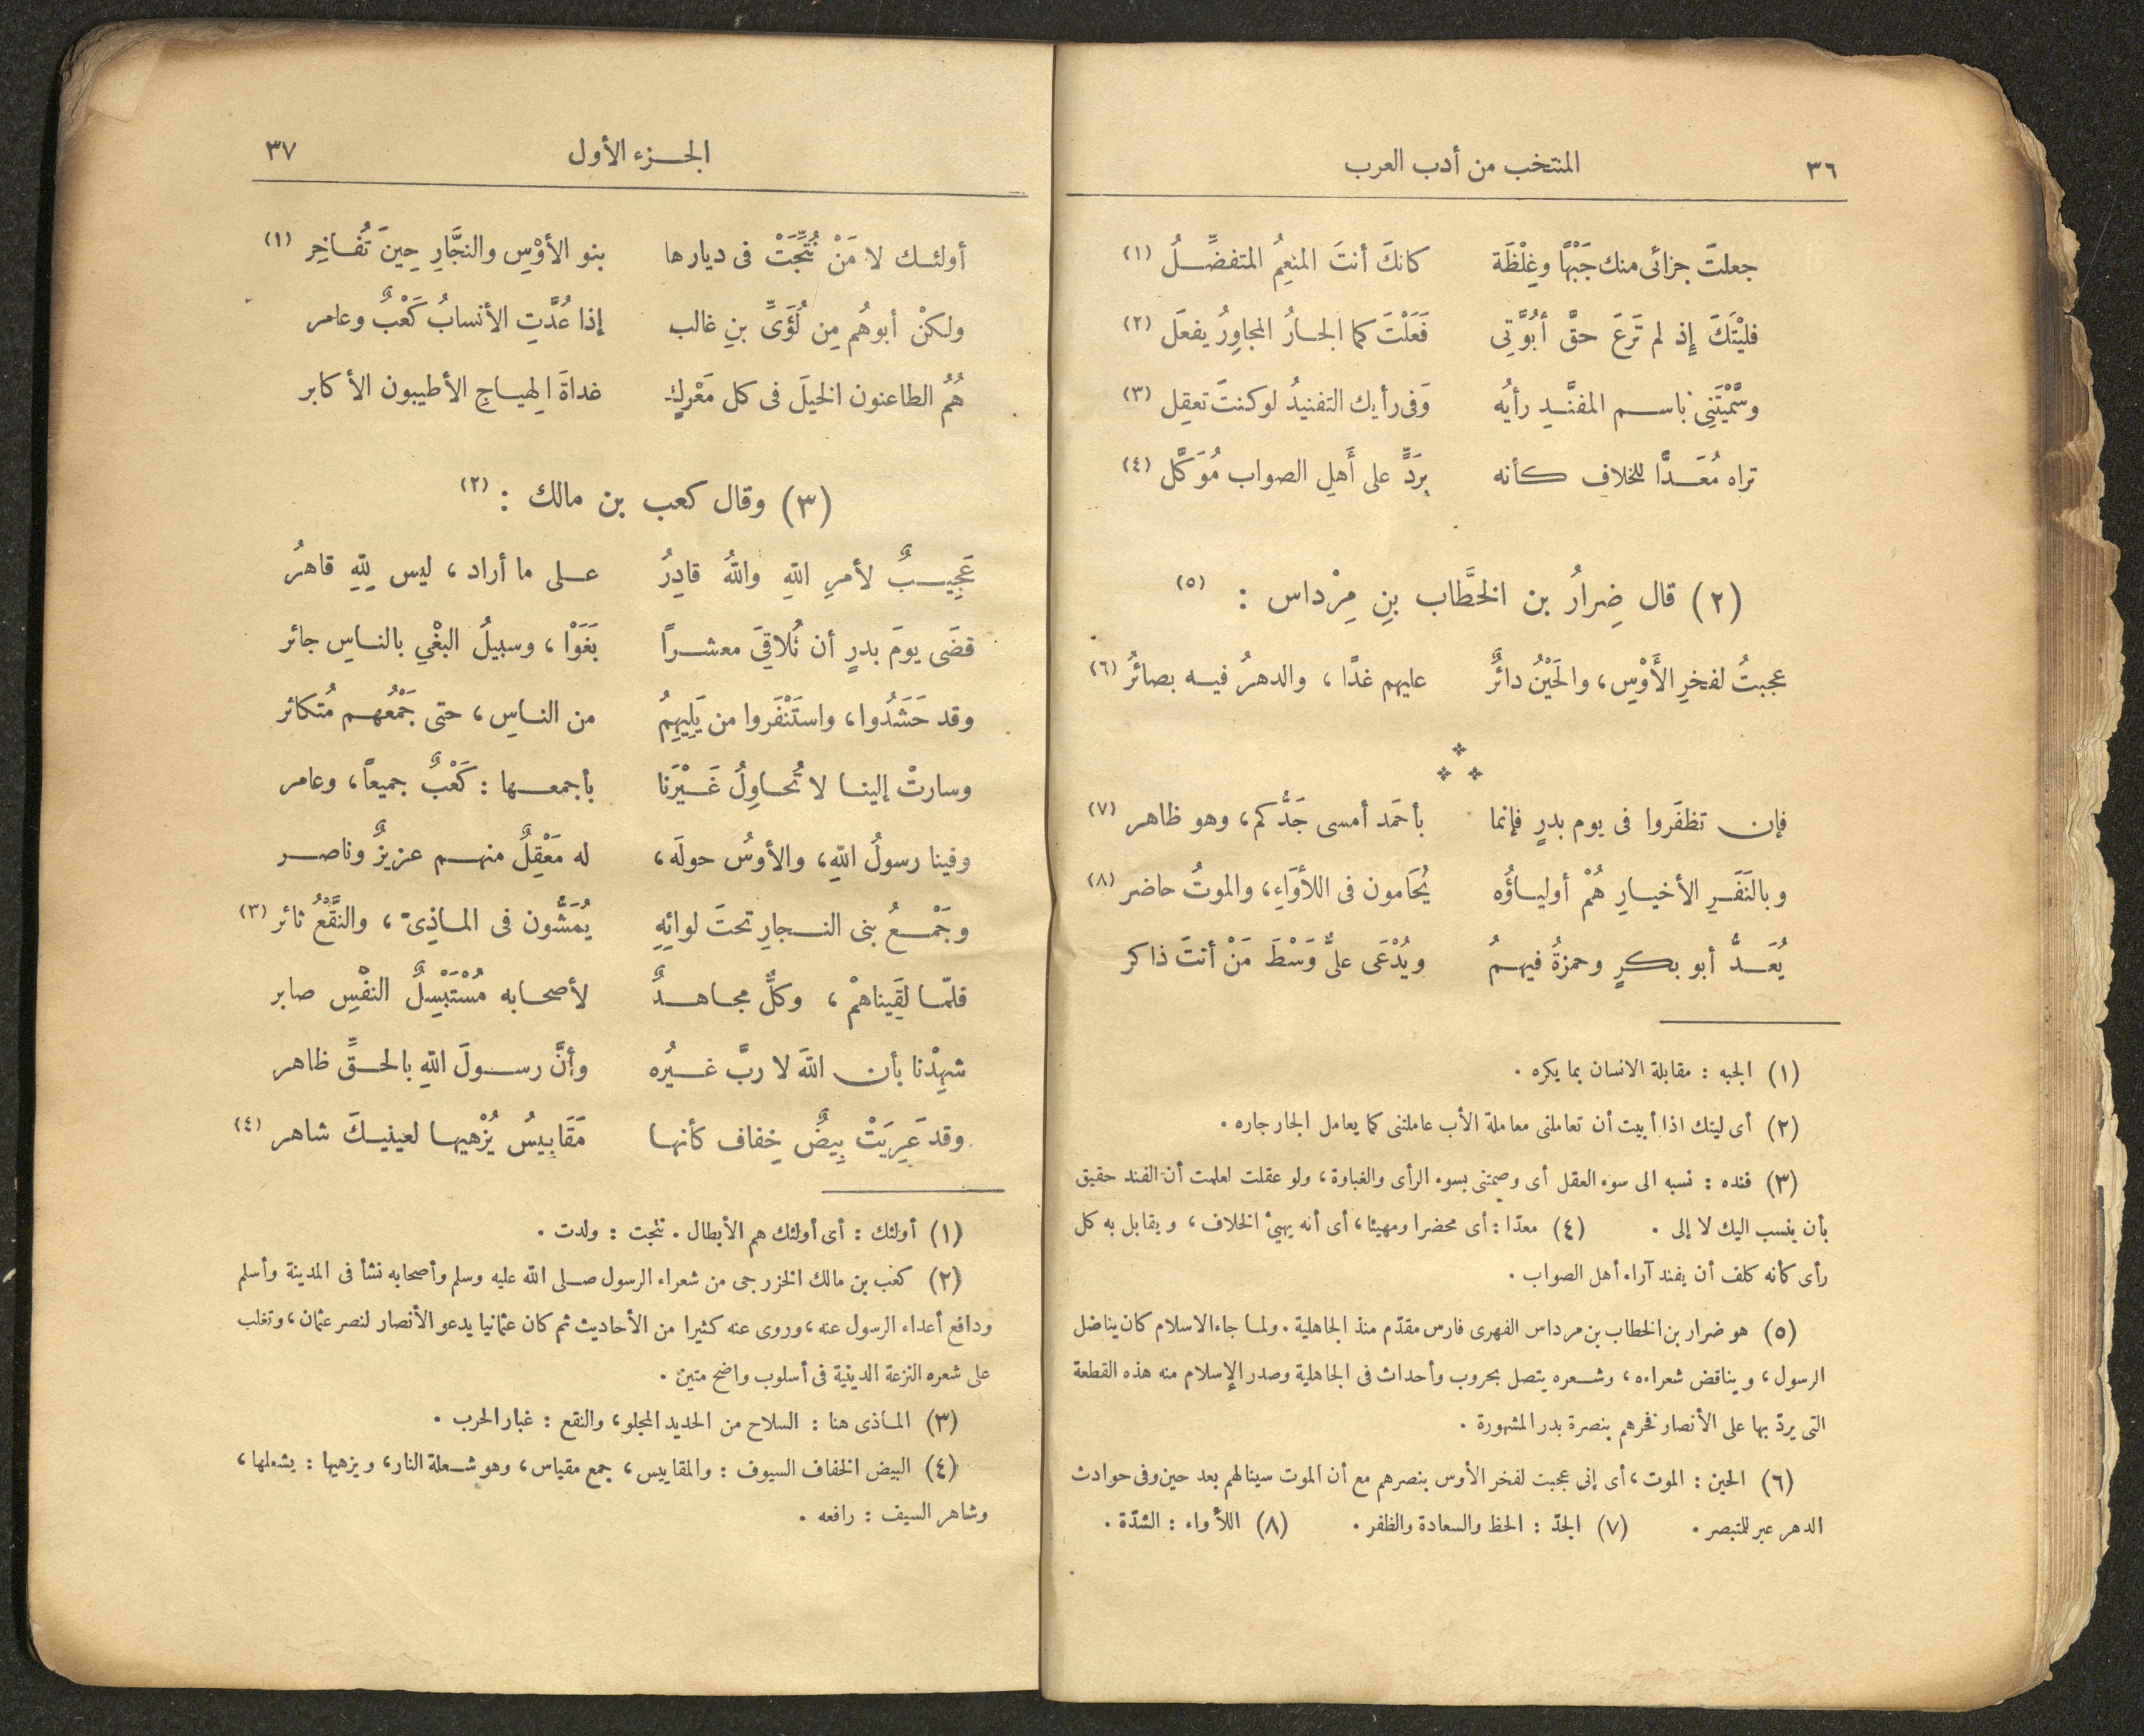 ٣٦
المنتخب من أدب العرب
جعلتَ جزائى منك جَبْهًا وغِلْظَة كانكَ أنتَ المنعِمُ المتفضِّلُ (١)
فليْتَكَ إِذ لم تَرعَ حقَّ أبُوَّتِى فَعَلْتَ كما الجارُ المجاوِرُ يفعَل (٢)
وسَّمْيْتَنِى باسم المفنَّدِ رأيُه وَفى رأيك التفنيدُ لو كنتَ تعقِل (٣)
تراه مُعَدًّا للخلاف كأنه بِرَدٍّ على أَهلِ الصواب مُوَكَّل (٤)
(٢) قال ضِرارُ بن الخطَّاب بنِ مِرْداس : (٥)
عجبتُ لفخرِ الأَوْسِ، والحَيْنُ دائرٌ عليهم غدًا ، والدهرُ فيه بصائرُ (٦)
فإن تظفَروا فى يوم بدرٍ فإنما بأحمَد أمسى جَدُّكم، وهو ظاهر (٧)
وبالنَفَرِ الأخيارِ هُمْ أولياؤُه يُحَامون فى اللأوَاءِ، والموتُ حاضر (٨)
يُعَدُّ أبو بكرٍ وحمزةُ فيهمُ ويُدْعَى علىٌّ وَسْطَ مَنْ أنتَ ذاكر
(١) الجبه : مقابلة الانسان بما يكره .
(٢) أى ليتك اذا أبيت أن تعاملنى معاملة الأب عاملتنى كما يعامل الجار جاره .
(٣) فنده : نسبه الى سوء العقل أى وصمتنى بسوء الرأى والغباوة ، ولو عقلت لعلمت أن الفند حقيق
بأن ينسب اليك لا إلى . (٤) معدّا : أى محضرا ومهيئا ، أى أنه يهيئ الخلاف ، ويقابل به كل
رأى كأنه كلف أن يفند آراء أهل الصواب .
(٥) هو ضرار بن الخطاب بن مرداس الفهرى فارس مقدّم منذ الجاهلية . ولما جاء الاسلام كان يناضل
الرسول ، ويناقض شعراءه ، وشعره يتصل بحروب وأحداث فى الجاهلية وصدر الإسلام منه هذه القطعة
التى يردّ بها على الأنصار فخرهم بنصرة بدر المشهورة .
(٦) الحين : الموت ، أى إنى عجبت لفخر الأوس بنصرهم مع أن الموت سينالهم بعد حين وفى حوادث
الدهر عبر للمتبصر . (٧) الجدّ : الحظ والسعادة والظفر . (٨) اللأواء : الشدّة .
الجزء الأول
٣٧
أولئك لا مَنْ نُتِّجَتْ فى ديارها بنو الأوْسِ والنجَّارِ حِينَ تُفاخِر (١)
ولكنْ أبوهُم مِن لُؤَىِّ بنِ غالب إذا عُدَّتِ الأنسابُ كَعْبٌ وعامر
هُمُ الطاعنون الخيلَ فى كل مَعْرِكٍ غداةَ الهِياجِ الأطيبون الأكابر
(٣) وقال كعب بن مالك : (٢)
عَجِيبٌ لأمرِ اللهِ واللهُ قادِرُ على ما أراد ، ليس لِلهِ قاهرُ
قضَى يومَ بدرٍ أن نُلاقِيَ معشراً بَغَوْا ، وسبيلُ البغْيِ بالناسِ جائر
وقد حَشَدُوا ، واستَنْفَروا من يَلِيهِمُ من الناسِ ، حتى جَمْعُهم مُتكاثر
وسارتْ إلينا لا تُحاوِلُ غَيْرَنا بأجمعها : كَعْبٌ جميعاً ، وعامر
وفينا رسولُ اللهِ، والأوسُ حولَه ، له مَعْقِلٌ منهم عزيزٌ وناصر
وجَمْعُ بنى النجارِ تحتَ لوائِهِ يُمَشُّون فى الماذِىّ ، والنَّقْعُ ثائر (٣)
فلمّا لقَيناهمْ ، وكلٌّ مجاهدٌ لأصحابه مُسْتَبْسِلٌ النفْسِ صابر
شهِدْنا بأن اللهَ لا ربَّ غيُره وأنَّ رسولَ اللهِ بالحقِّ ظاهر
وقد عَرِيَتْ بِيضٌ خِفاف كأنها مَقَابِيسُ يُزْهيها لعينيكَ شاهر (٤)
(١) أولئك : أى أولئك هم الأبطال . نتجت : ولدت .
(٢) كعب بن مالك الخزرجى من شعراء الرسول صلى الله عليه وسلم وأصحابه نشأ فى المدينة وأسلم
ودافع أعداء الرسول عنه ، وروى عنه كثيرا من الأحاديث ثم كان عثمانيا يدعو الأنصار لنصر عثمان ، وتغلب
على شعره النزعة الدينية فى أسلوب واضح متين .
(٣) الماذى هنا : السلاح من الحديد المجلو ، والنقع : غبار الحرب .
(٤) البيض الخفاف السيوف : والمقابيس ، جمع مقياس ، وهو شعلة النار ، ويزهيها : يشعلها ،
وشاهر السيف : رافعه .